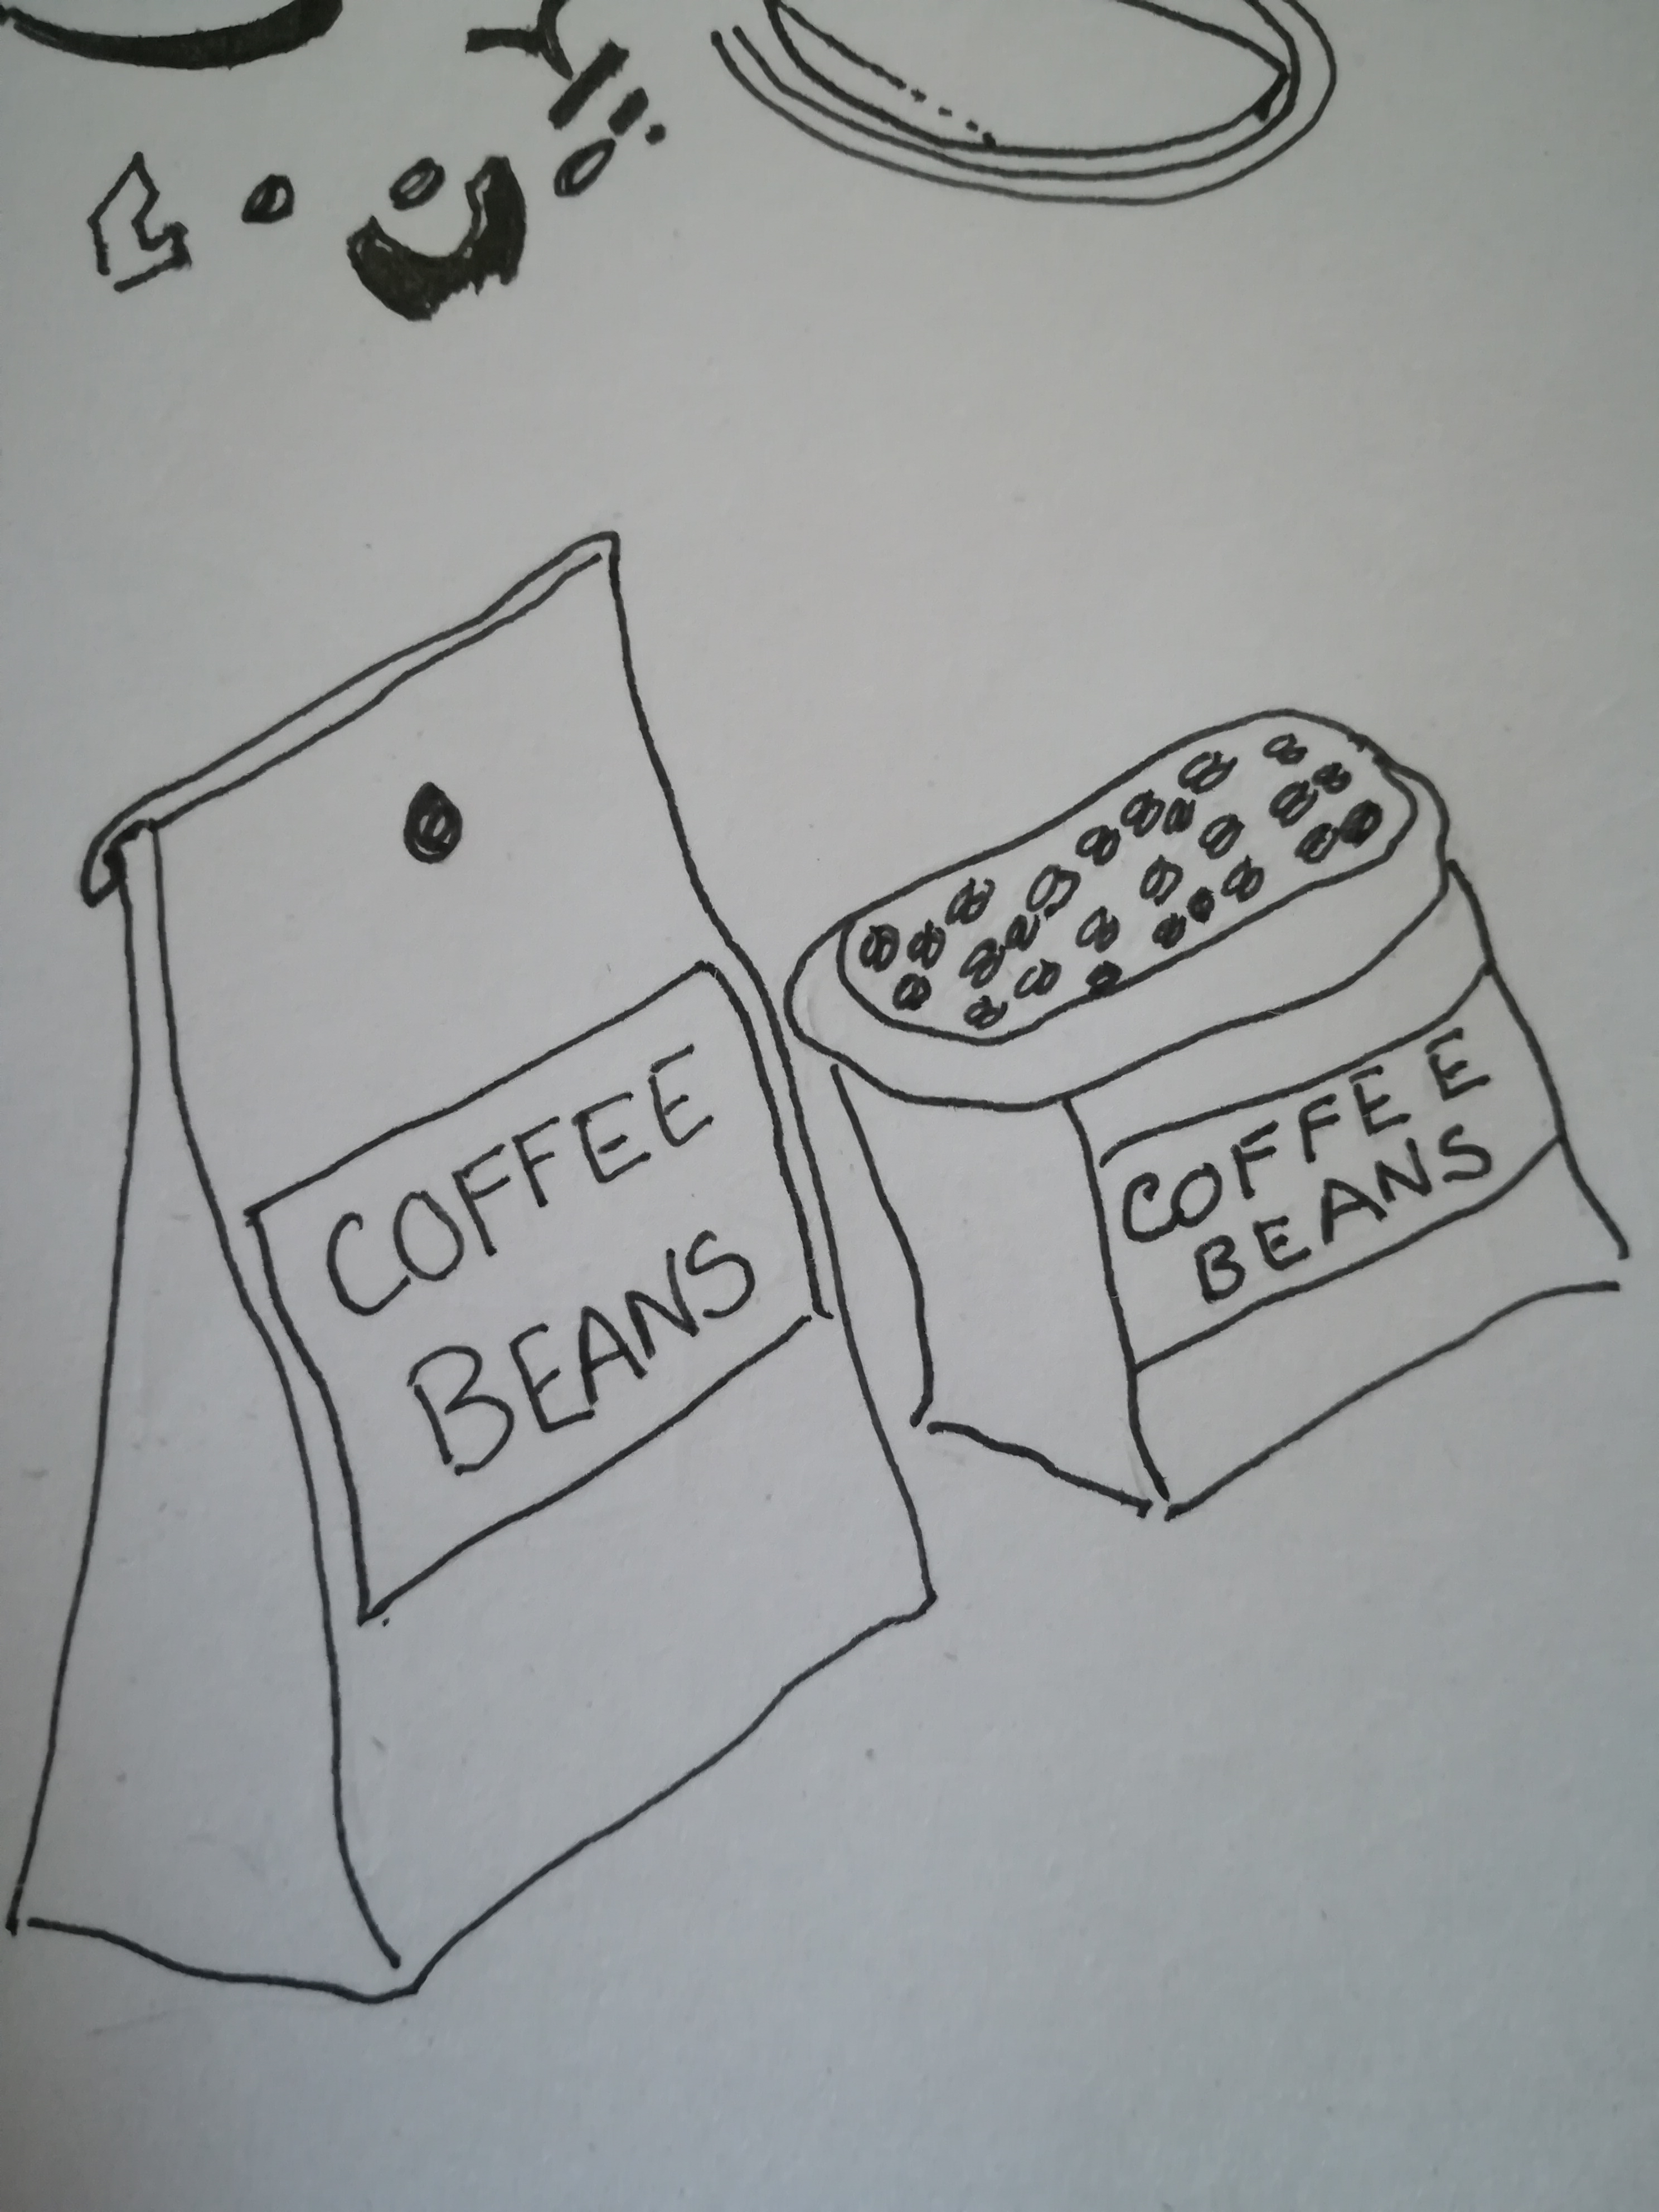 COFFEE
BEANS
COFFEE
BEANS